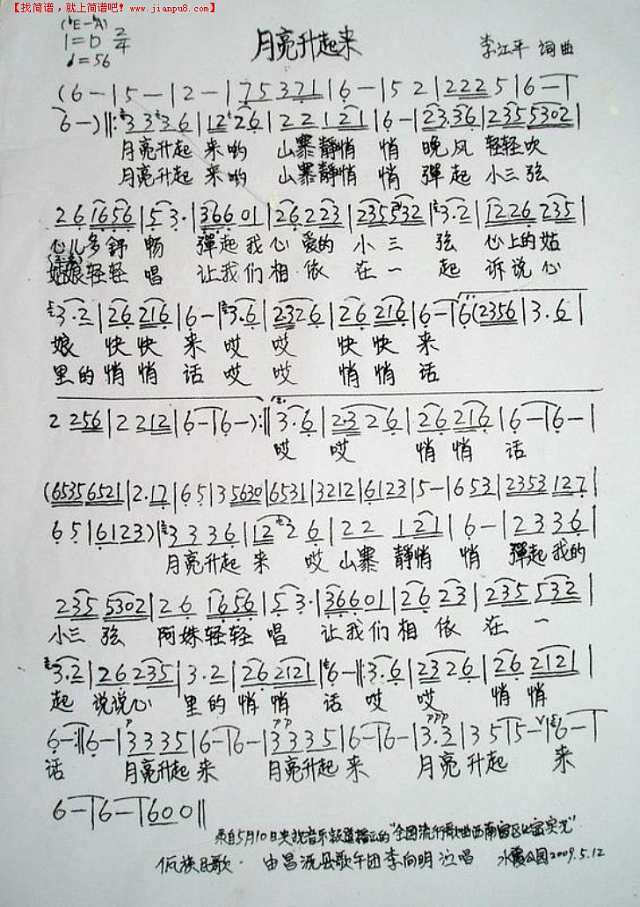 【找简谱，就上简谱吧！www.jianpu8.com】
(ᵇE-ᵇA)
1=D 2/4
♩=56
月亮升起来
李江平 词曲
(6 - | 5 - | 2 - | 7 5 3 2 1 | 6 - | 5 2 | 2 2 2 5 | 6 - |
6 -) ‖: 3 3 3 6 | 1 2 2 6 | 2 2 1 2 1 | 6 - | 2 3 3 6 | 2 3 5 5 3 0 2 |
月亮升起 来哟 山寨静悄 悄 晚风 轻轻吹
月亮升起 来哟 山寨静悄 悄 弹起 小三弦
2 6 1 6 5 6 | 5 3· | 3 6 6 0 1 | 2 6 2 2 3 | 2 3 5 5 3 2 | 3· 2 | 1 2 2 6 2 3 5 |
心儿多舒 畅 弹起我心 爱的 小 三 弦 心上的姑
姑娘轻轻 唱 让我们相 依 在 一 起 诉说心
3· 2 | 2 6 2 1 6 | 6 - | 3· 6 | 2·3 2 6 | 2 6 2 1 6 | 6 - | 6 (2 3 5 6 | 3· 6 |
娘 快快 来 哎 哎 快快 来
里的 悄悄 话 哎 哎 悄悄 话
2 2 5 6 | 2 2 1 2 | 6 - | 6 -) :‖ 3· 6 | 2·3 2 6 | 2 6 2 1 6 | 6 - | 6 - |
哎 哎 悄悄 话
(6 5 3 5 6 5 2 1 | 2· 1 7 | 6 5 | 3 5 6 3 0 | 6 5 3 1 | 3 2 1 2 | 6 1 2 3 | 5 - | 6 5 3 | 2 3 5 3 1 2 7 |
6 5 | 6 1 2 3) | 3 3 3 6 | 1 2 2 6 | 2 2 1 2 1 | 6 - | 2 3 3 6 |
月亮升起 来 哎 山寨 静悄 悄 弹起我的
2 3 5 5 3 0 2 | 2 6 1 6 5 6 | 5 3· | 3 6 6 0 1 | 2 6 2 3 | 2 3 5 5 3 2 |
小三 弦 阿妹轻轻 唱 让我们相 依 在 一
3· 2 | 2 6 2 3 5 | 3· 2 | 2 6 2 1 2 1 | 6 - ‖: 3· 6 | 2 3 2 6 | 2 6 2 1 2 1 |
起 说说心 里的 悄悄 话 哎 哎 悄悄
6 - :‖ 6 - | 3 3 3 5 | 6 - | 6 - | 3 3 3 5 | 6 - | 6 - | 3· 3 | 3 5 | 5 - | 6 - |
话 月亮升起 来 月亮升起 来 月亮 升起 来
6 - | 6 - | 6 0 0 ‖
来自5月10日央视音乐频道播出的“全国流行歌曲西南赛区
佤族民歌· 由 县歌午团李向明 演唱 水霞公园2009.5.12